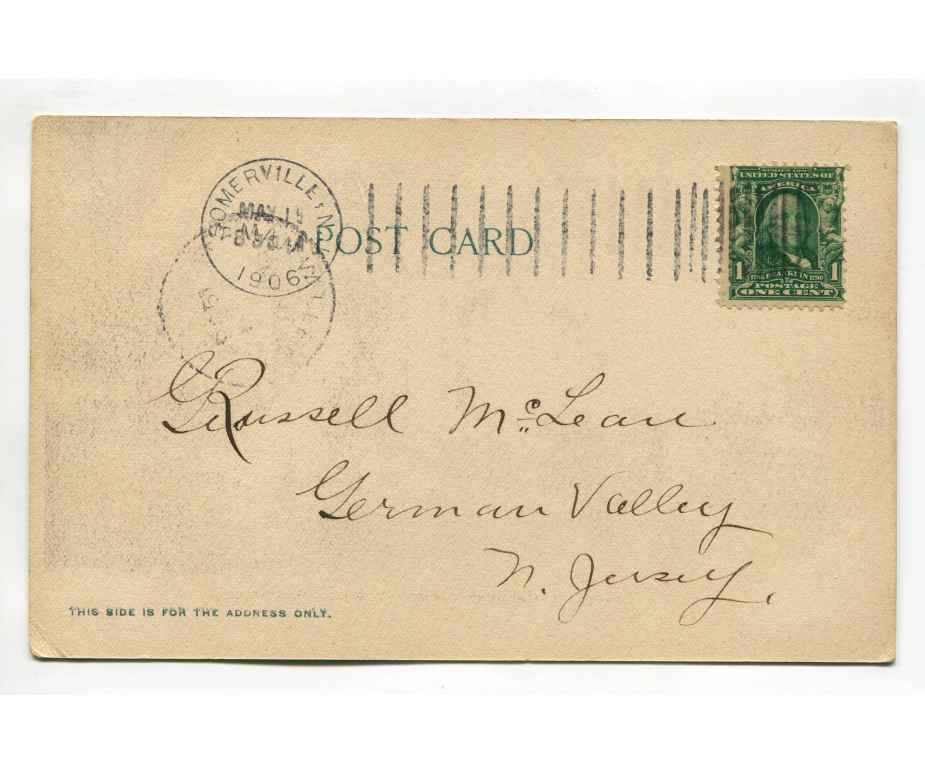 SOMERVILLE, N.J.
MAY 1
1906
POST CARD
UNITED STATES OF
AMERICA
1 FRANKLIN 1
POSTAGE
ONE CENT
G Russell McLean
German Valley
N. Jersey.
THIS SIDE IS FOR THE ADDRESS ONLY.